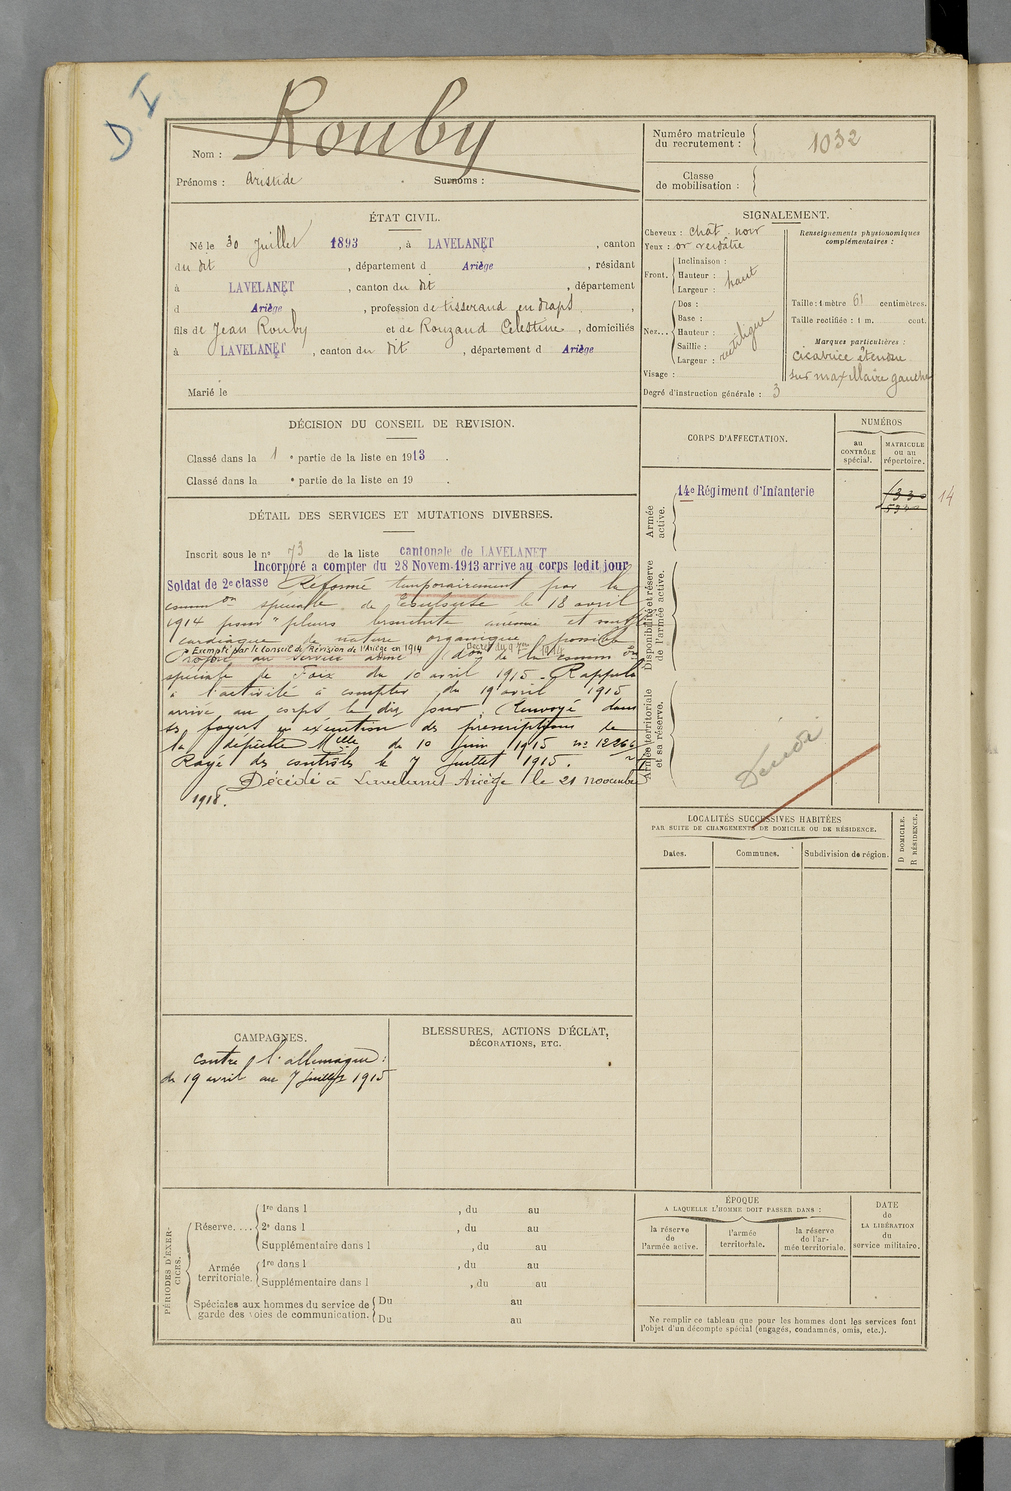 D. I
Rouby
Nom :
Prénoms : Aristide Surnoms :
Numéro matricule
du recrutement : 1032
Classe
de mobilisation :
ÉTAT CIVIL.
Né le 30 Juillet 1893, à LAVELANET, canton
du dit, département d Ariège, résidant
à LAVELANET, canton du dit, département
d Ariège, profession de tisserand en draps,
fils de Jean Rouby et de Rouzaud Célestine, domiciliés
à LAVELANET, canton du dit, département d Ariège
Marié le
SIGNALEMENT.
Cheveux : chât. noir
Yeux : or verdâtre
Front. Inclinaison :
Hauteur : haut
Largeur :
Nez... Dos :
Base :
Hauteur : rectiligne
Saillie :
Largeur :
Visage :
Degré d'instruction générale : 3
Renseignements physionomiques
complémentaires :
Taille : 1 mètre 61 centimètres.
Taille rectifiée : 1 m. cent.
Marques particulières :
cicatrice étendue
sur maxillaire gauche
DÉCISION DU CONSEIL DE REVISION.
Classé dans la 1 e partie de la liste en 1913.
Classé dans la e partie de la liste en 19 .
CORPS D'AFFECTATION.
NUMÉROS
au
CONTRÔLE
spécial.
MATRICULE
ou au
répertoire.
Armée
active.
14e Régiment d'Infanterie
14
Disponibilité et réserve
de l'armée active.
Armée territoriale
et sa réserve.
Décédé
DÉTAIL DES SERVICES ET MUTATIONS DIVERSES.
Inscrit sous le n° 73 de la liste cantonale de LAVELANET
Incorporé à compter du 28 Novem. 1913 arrivé au corps ledit jour
Soldat de 2e classe Réformé temporairement par la
common spéciale de le 18 avril
1914 pour " bronchite et souffle
cardiaque de nature organique possible
Exempté par le Conseil de Révision de l'Ariège en 1914
Propre au service armé don de la common
spéciale de Foix du 10 avril 1915. Rappelé
à l'activité à compter du 19 avril 1915
arrivé au corps le dit jour. Renvoyé dans
ses foyers en exécution des prescriptions de
la dépêche Mlle du 10 Juin 1915 n°
Rayé des contrôles le 7 Juillet 1915.
Décédé à Lavelanet Ariège le 21 novembre
1918.
LOCALITÉS SUCCESSIVES HABITÉES
PAR SUITE DE CHANGEMENTS DE DOMICILE OU DE RÉSIDENCE.
Dates.
Communes.
Subdivision de région.
D DOMICILE.
R RÉSIDENCE.
CAMPAGNES.
contre l'allemagne :
du 19 avril au 7 juillet 1915
BLESSURES, ACTIONS D'ÉCLAT,
DÉCORATIONS, ETC.
PÉRIODES D'EXER-
CICES.
Réserve.... 1re dans l , du au
2e dans l , du au
Supplémentaire dans l , du au
Armée
territoriale. 1re dans l , du au
Supplémentaire dans l , du au
Spéciales aux hommes du service de
garde des voies de communication. Du au
Du au
ÉPOQUE
A LAQUELLE L'HOMME DOIT PASSER DANS :
la réserve
de
l'armée active.
l'armée
territoriale.
la réserve
de l'ar-
mée territoriale.
DATE
de
LA LIBÉRATION
du
service militaire.
Ne remplir ce tableau que pour les hommes dont les services font
l'objet d'un décompte spécial (engagés, condamnés, omis, etc.).